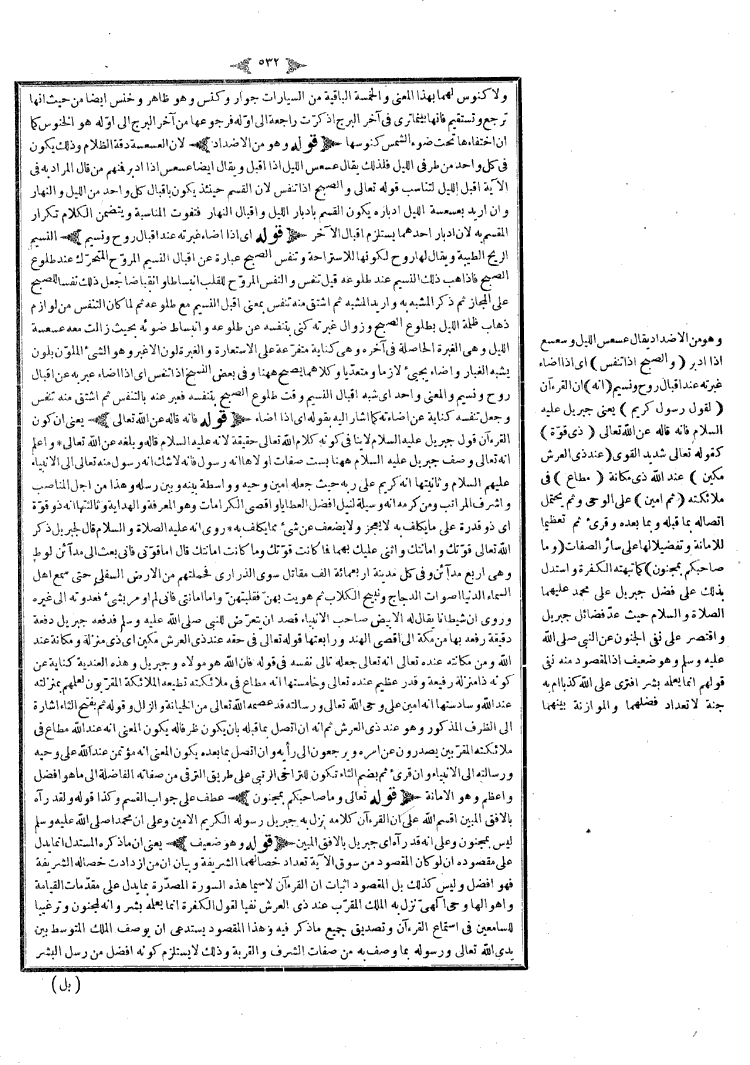 ٥٣٢
ولا كنوس لهما بهذا المعنى والخمسة الباقية من السيارات جوار وكنس وهو ظاهر وخنس ايضا من حيث انها
ترجع وتستقيم فانها بينما ترى في آخر البرج اذ كرت راجعة الى اوله فرجوعها من آخر البرج الى اوله هو الخنوس كما
ان اختفاءها تحت ضوء الشمس كنوسها ﴿ قوله وهو من الاضداد ﴾ لان العسعسة دقة الظلام وذلك يكون
في كل واحد من طرفى الليل فلذلك يقال عسعس الليل اذا اقبل ويقال ايضا عسعس اذا ادبر فنهم من قال المراد به في
الآية اقبل الليل لتناسب قوله تعالى والصبح اذا تنفس لان القسم حينئذ يكون باقبال كل واحد من الليل والنهار
وان اريد بعسعسة الليل ادباره يكون القسم بادبار الليل واقبال النهار فتفوت المناسبة ويتضمن الكلام تكرار
المقسم به لان ادبار احدهما يستلزم اقبال الآخر ﴿ قوله اى اذا اضاء غبرته عند اقبال روح ونسيم ﴾ النسيم
الريح الطيبة ويقال لها روح لكونها للاستراحة وتنفس الصبح عبارة عن اقبال النسيم المروح المتحرك عند طلوع
الصبح فاذا هب ذلك النسيم عند طلوعه قيل تنفس والنفس المروح للقلب انبساطا وانقباضا جعل ذلك نفسا للصبح
على المجاز ثم ذكر المشبه به واريد المشبه ثم اشتق منه تنفس بمعنى اقبل النسيم مع طلوعه ثم لما كان التنفس من لوازم
ذهاب ظلمة الليل بطلوع الصبح وزوال غبرته كنى بتنفسه عن طلوعه وانبساط ضوئه بحيث زالت معه عسعسة
الليل وهى الغبرة الحاصلة في آخره وهى كناية متفرعة على الاستعارة والغبرة لون الاغبر وهو الشئ الملون بلون
يشبه الغبار واضاء يجئ لازما ومتعديا وكلاهما يصح ههنا وفى بعض النسخ اذا تنفس اى اذا اضاء عبر به عن اقبال
روح ونسيم والمعنى واحد اى شبه اقبال النسيم وقت طلوع الصبح بتنفسه فعبر عنه بالتنفس ثم اشتق منه تنفس
وجعل تنفسه كناية عن اضاءته كما اشار اليه بقوله اى اذا اضاء ﴿ قوله فانه قاله عن الله تعالى ﴾ يعنى ان كون
القرءآن قول جبريل عليه السلام لاينافى كونه كلام الله تعالى حقيقة لانه عليه السلام قاله وبلغه عن الله تعالى * واعلم
انه تعالى وصف جبريل عليه السلام ههنا بست صفات اولاها انه رسول فانه لاشك انه رسول منه تعالى الى الانبياء
عليهم السلام وثانيتها انه كريم على ربه حيث جعله امين وحيه وواسطة بينه وبين رسله وهذا من اجل المناصب
واشرف المراتب ومن كرمه انه وسيلة لنيل افضل العطايا واقصى الكرامات وهو المعرفة والهداية وثالثتها انه ذو قوة
اى ذو قدرة على ما يكلف به لا يعجز ولا يضعف عن شئ مما يكلف به * روى انه عليه الصلاة والسلام قال لجبريل ذكر
الله تعالى قوتك وامانتك واثنى عليك بهما فما كانت قوتك وما كانت امانتك قال اما قوتى فانى بعث الى مدآئن لوط
وهى اربع مدآئن وفى كل مدينة اربعمائة الف مقاتل سوى الذرارى فحملتهم من الارض السفلى حتى سمع اهل
السماء الدنيا اصوات الدجاج ونبيح الكلاب ثم هويت بهن فقلبتهن واما امانتى فانى لم اومر بشئ فعدوته الى غيره
وروى ان شيطانا يقال له الابيض صاحب الانبياء قصد ان يتعرض للنبى صلى الله عليه وسلم فدفعه جبريل دفعة
دقيقة رفعه بها من مكة الى اقصى الهند ورابعتها قوله تعالى فى حقه عند ذى العرش مكين اى ذى منزلة ومكانة عند
الله ومن مكانته عنده تعالى انه تعالى جعله تالى نفسه فى قوله فان الله هو مولاه وجبريل وهذه العندية كناية عن
كونه ذا منزلة رفيعة وقدر عظيم عنده تعالى وخامستها انه مطاع فى ملائكته تطيعه الملائكة المقربون لعلمهم بمنزلته
عند الله وسادستها انه امين على وحى الله تعالى ورسالته قد عصمه الله تعالى من الخيانة والزلل وقوله ثم بفتح الثاء اشارة
الى الظرف المذكور وهو عند ذى العرش ثم انه ان اتصل بما قبله بان يكون ظرفا له يكون المعنى انه عند الله مطاع فى
ملائكته المقربين يصدرون عن امره ويرجعون الى رأيه وان اتصل بما بعده يكون المعنى انه مؤتمن عند الله على وحيه
ورسالته الى الانبياء وان قرئ ثم بضم الثاء تكون للتراخى الرتبى على طريق الترقى من صفاته الفاضلة الى ما هو افضل
واعظم وهو الامانة ﴿ قوله تعالى وما صاحبكم بمجنون ﴾ عطف على جواب القسم وكذا قوله ولقد رآه
بالافق المبين اقسم الله على ان القرءآن كلامه نزل به جبريل رسوله الكريم الامين وعلى ان محمدا صلى الله عليه وسلم
ليس بمجنون وعلى انه قد رآه اى جبريل بالافق المبين ﴿ قوله وهو ضعيف ﴾ يعنى ان ما ذكره المستدل انما يدل
على مقصوده ان لو كان المقصود من سوق الآية تعداد خصالهما الشريفة وبيان ان من ازدادت خصاله الشريفة
فهو افضل وليس كذلك بل المقصود اثبات ان القرءآن لاسيما هذه السورة المصدرة بما يدل على مقدمات القيامة
واهوالها وحى آلهى نزل به الملك المقرب عند ذى العرش نفيا لقول الكفرة انما يعلمه بشر وانه لمجنون وترغيبا
للسامعين فى استماع القرءآن وتصديق جميع ما ذكر فيه وهذا المقصود يستدعى ان يوصف الملك المتوسط بين
يدى الله تعالى ورسوله بما وصف به من صفات الشرف والقربة وذلك لا يستلزم كونه افضل من رسل البشر
(بل)
وهو من الاضداد يقال عسعس الليل وسعسع
اذا ادبر (والصبح اذا تنفس) اى اذا اضاء
غبرته عند اقبال روح ونسيم (انه) ان القرءآن
(لقول رسول كريم) يعنى جبريل عليه
السلام فانه قاله عن الله تعالى (ذى قوة)
كقوله تعالى شديد القوى (عند ذى العرش
مكين) عند الله ذى مكانة (مطاع) فى
ملائكته (ثم امين) على الوحى وثم يحتمل
اتصاله بما قبله وبما بعده وقرئ ثم تعظيما
للامانة وتفضيلا لها على سائر الصفات (وما
صاحبكم بمجنون) كما تبهته الكفرة واستدل
بذلك على فضل جبريل على محمد عليهما
الصلاة والسلام حيث عد فضائل جبريل
واقتصر على نفى الجنون عن النبى صلى الله
عليه وسلم وهو ضعيف اذ المقصود منه نفى
قولهم انما يعلمه بشر افترى على الله كذبا ام به
جنة لا تعداد فضلهما والموازنة بينهما